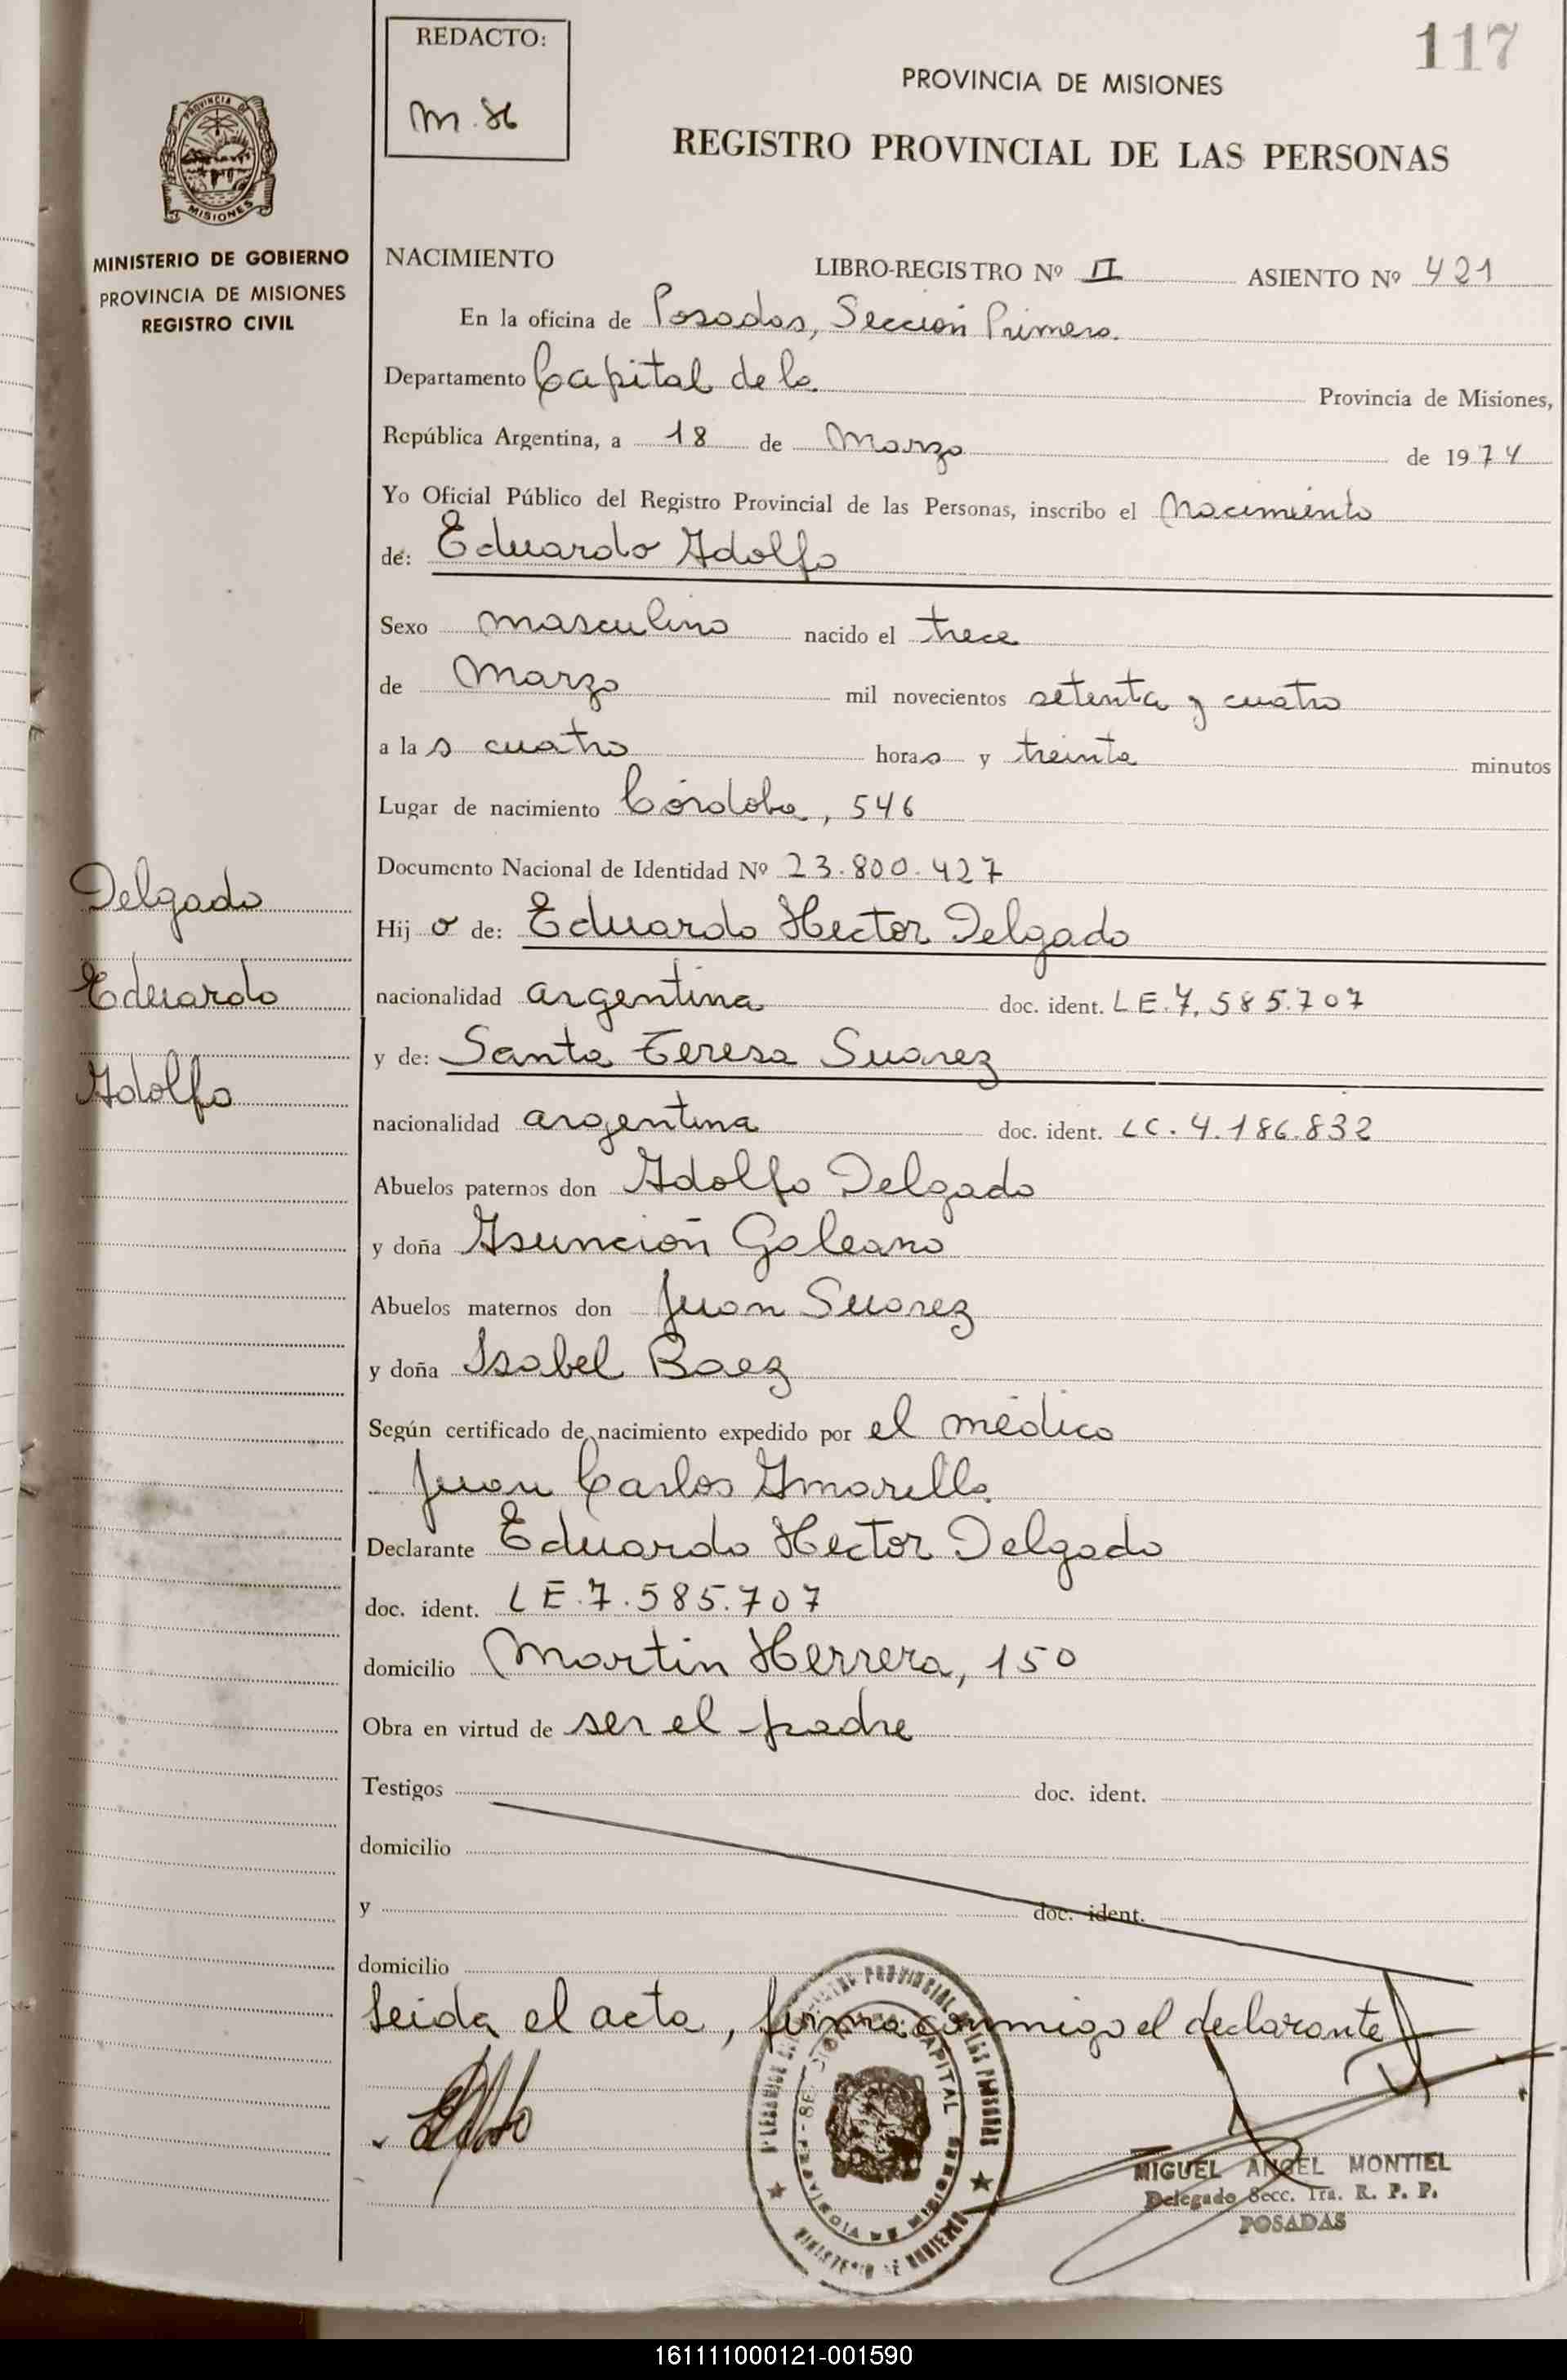 117
REDACTO:
M. H
PROVINCIA DE MISIONES
REGISTRO PROVINCIAL DE LAS PERSONAS
PROVINCIA DE
MISIONES
MINISTERIO DE GOBIERNO
PROVINCIA DE MISIONES
REGISTRO CIVIL
NACIMIENTO LIBRO-REGISTRO Nº II ASIENTO Nº 421
En la oficina de Posadas, Sección Primera.
Departamento Capital de la Provincia de Misiones,
República Argentina, a 18 de Marzo de 1974
Yo Oficial Público del Registro Provincial de las Personas, inscribo el Nacimiento
de: Eduardo Adolfo
Sexo masculino nacido el trece
de Marzo mil novecientos setenta y cuatro
a las cuatro horas y treinta minutos
Lugar de nacimiento Córdoba, 546
Documento Nacional de Identidad Nº 23.800.427
Hijo de: Eduardo Hector Delgado
nacionalidad argentina doc. ident. LE.7.585.707
y de: Santa Teresa Suarez
nacionalidad argentina doc. ident. LC. 4.186.832
Abuelos paternos don Adolfo Delgado
y doña Asunción Galeano
Abuelos maternos don Juan Suarez
y doña Isabel Baez
Según certificado de nacimiento expedido por el médico
Juan Carlos Amarilla
Declarante Eduardo Hector Delgado
doc. ident. LE.7.585.707
domicilio Martin Herrera, 150
Obra en virtud de ser el padre
Testigos doc. ident.
domicilio
y doc. ident.
domicilio
Leida el acta, firma conmigo el declarante
Delgado
Eduardo
Adolfo
MIGUEL ANGEL MONTIEL
Delegado Secc. 1ra. R. P. P.
POSADAS
161111000121-001590